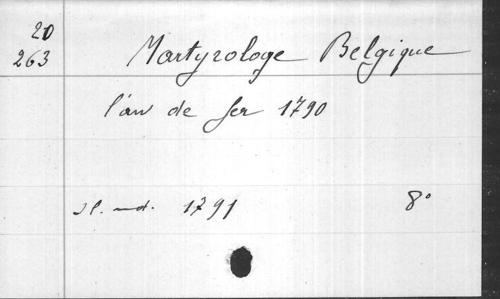 20
263
Martyrologe Belgique
l'an de fer 1790
Sl. nd. 1791 8°